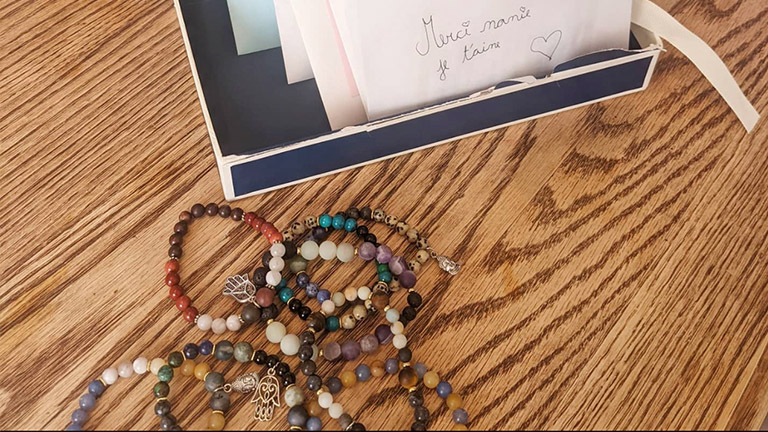 Merci manie
je t'aime